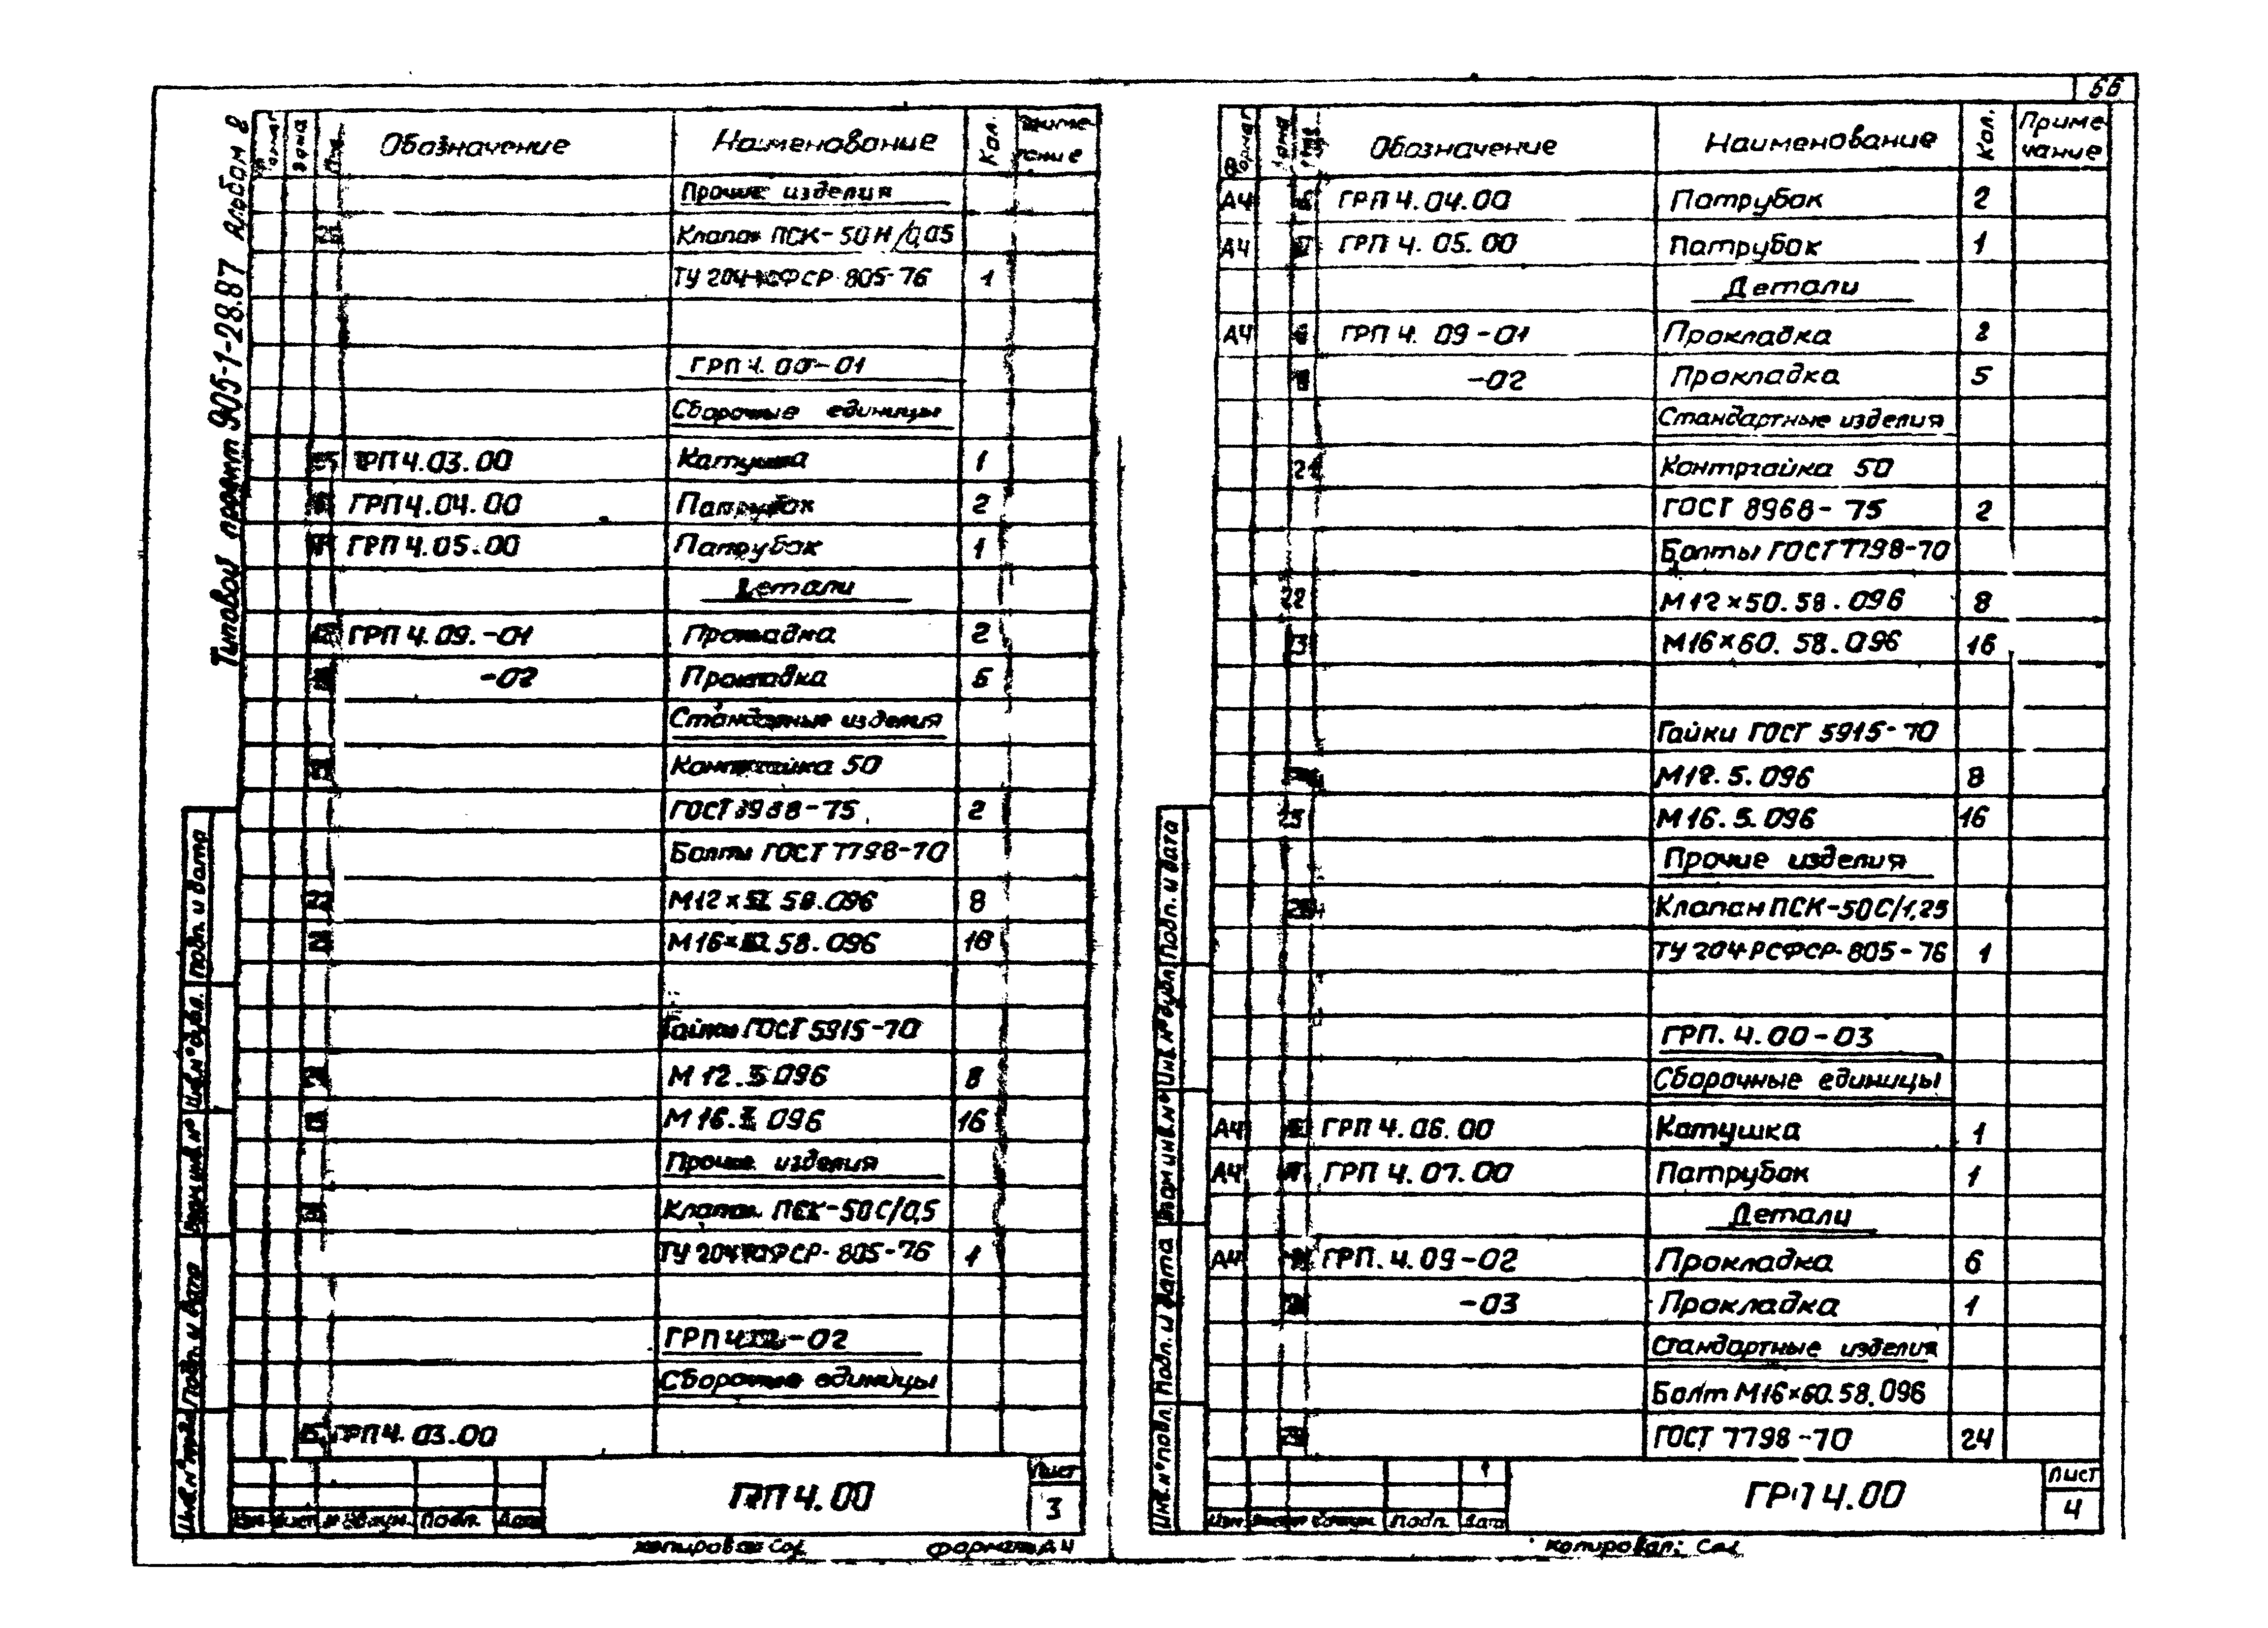 66
Типовой проект 905-1-28.87 Альбом 8
Зона Обозначение Наименование Кол.
Прочие изделия
Клапан ПСК-50Н/0,05
ТУ 204-РСФСР-805-76 1
ГРП 4.00-01
Сборочные единицы
ГРП 4.03.00 Катушка 1
ГРП 4.04.00 Патрубок 2
ГРП 4.05.00 Патрубок 1
Детали
ГРП 4.09.-01 Прокладка 2
-02 Прокладка 5
Стандартные изделия
Контргайка 50
ГОСТ 8968-75 2
Болты ГОСТ 7798-70
М12х 58.096 8
М16х 58.096 16
Гайки ГОСТ 5915-70
М 12.5.096 8
М 16.5.096 16
Прочие изделия
Клапан ПСК-50С/0,5
ТУ 204-РСФСР-805-76 1
ГРП 4.00-02
Сборочные единицы
5 ГРП 4.03.00
ГРП 4.00
Лист
3
Изм. Лист № докум. Подп. Дата
Копировал: формат А4
Инв.№ подл. Подп. и дата Взам.инв.№ Инв.№ дубл. Подп. и дата
Формат Зона Поз. Обозначение Наименование Кол. Примечание
А4 ГРП 4.04.00 Патрубок 2
А4 ГРП 4.05.00 Патрубок 1
Детали
А4 ГРП 4.09-01 Прокладка 2
-02 Прокладка 5
Стандартные изделия
21 Контргайка 50
ГОСТ 8968-75 2
Болты ГОСТ 7798-70
22 М12х50.58.096 8
М16х60.58.096 16
Гайки ГОСТ 5915-70
М12.5.096 8
М16.5.096 16
Прочие изделия
Клапан ПСК-50С/1,25
ТУ 204-РСФСР-805-76 1
ГРП.4.00-03
Сборочные единицы
А4 ГРП 4.06.00 Катушка 1
А4 ГРП 4.07.00 Патрубок 1
Детали
А4 ГРП.4.09-02 Прокладка 6
-03 Прокладка 1
Стандартные изделия
Болт М16х60.58.096
ГОСТ 7798-70 24
ГРП 4.00
Лист
4
Изм. Подп. Дата
Копировал:
Инв.№ подл. Подп. и дата Взам.инв.№ Инв.№ дубл. Подп. и дата